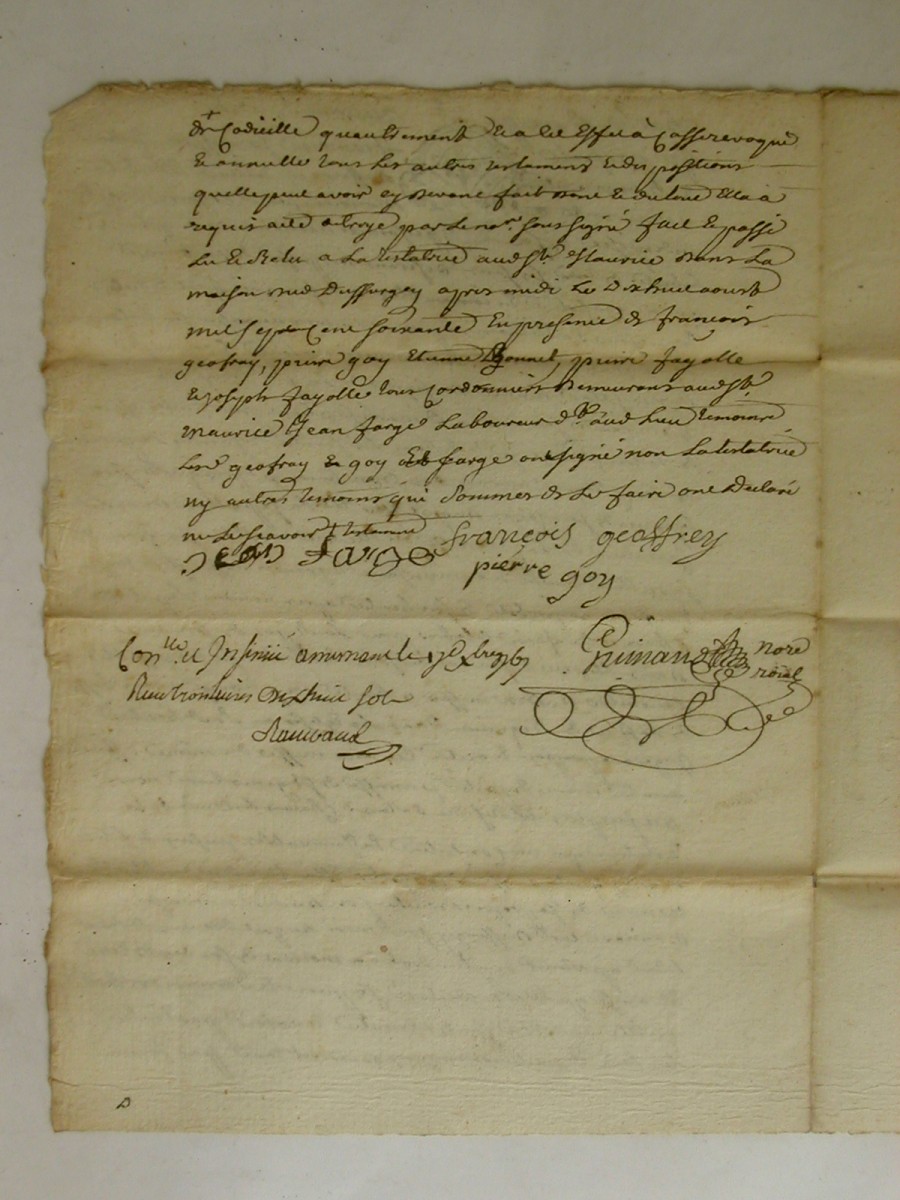 dt Codicille quautrement et a cet Effet à Cassé revoqué
Et annullé tous les autres testaments et dispositions
quelle peut avoir cy devant fait dont Et du tout Ella a
requis acte octroyé par le nore. soussigné fait Et passé
Lu Et Relu a La testatrice audt. st maurice dans La
maison dud apres midi Le Dix huit aoust
mil sept Cent soixante En presence de françois
geofray, pierre goy Etienne Bonnet, pierre fayolle
Et joseph fayolle tous Cordonniers demeurans audt st.
maurice Et jean farge Laboureur dt. aud Lieu temoins
Lesd geofray Et goy Et farge ont signé non La testatrice
ny autres temoins qui sommes de Le faire ont declaré
ne Le scavoir testament
françois geoffrey
jean farge
pierre goy
Conllé. et Insinué a le 17e xbre 1767
Reçu trois livres Dix huit sols
nore
roial